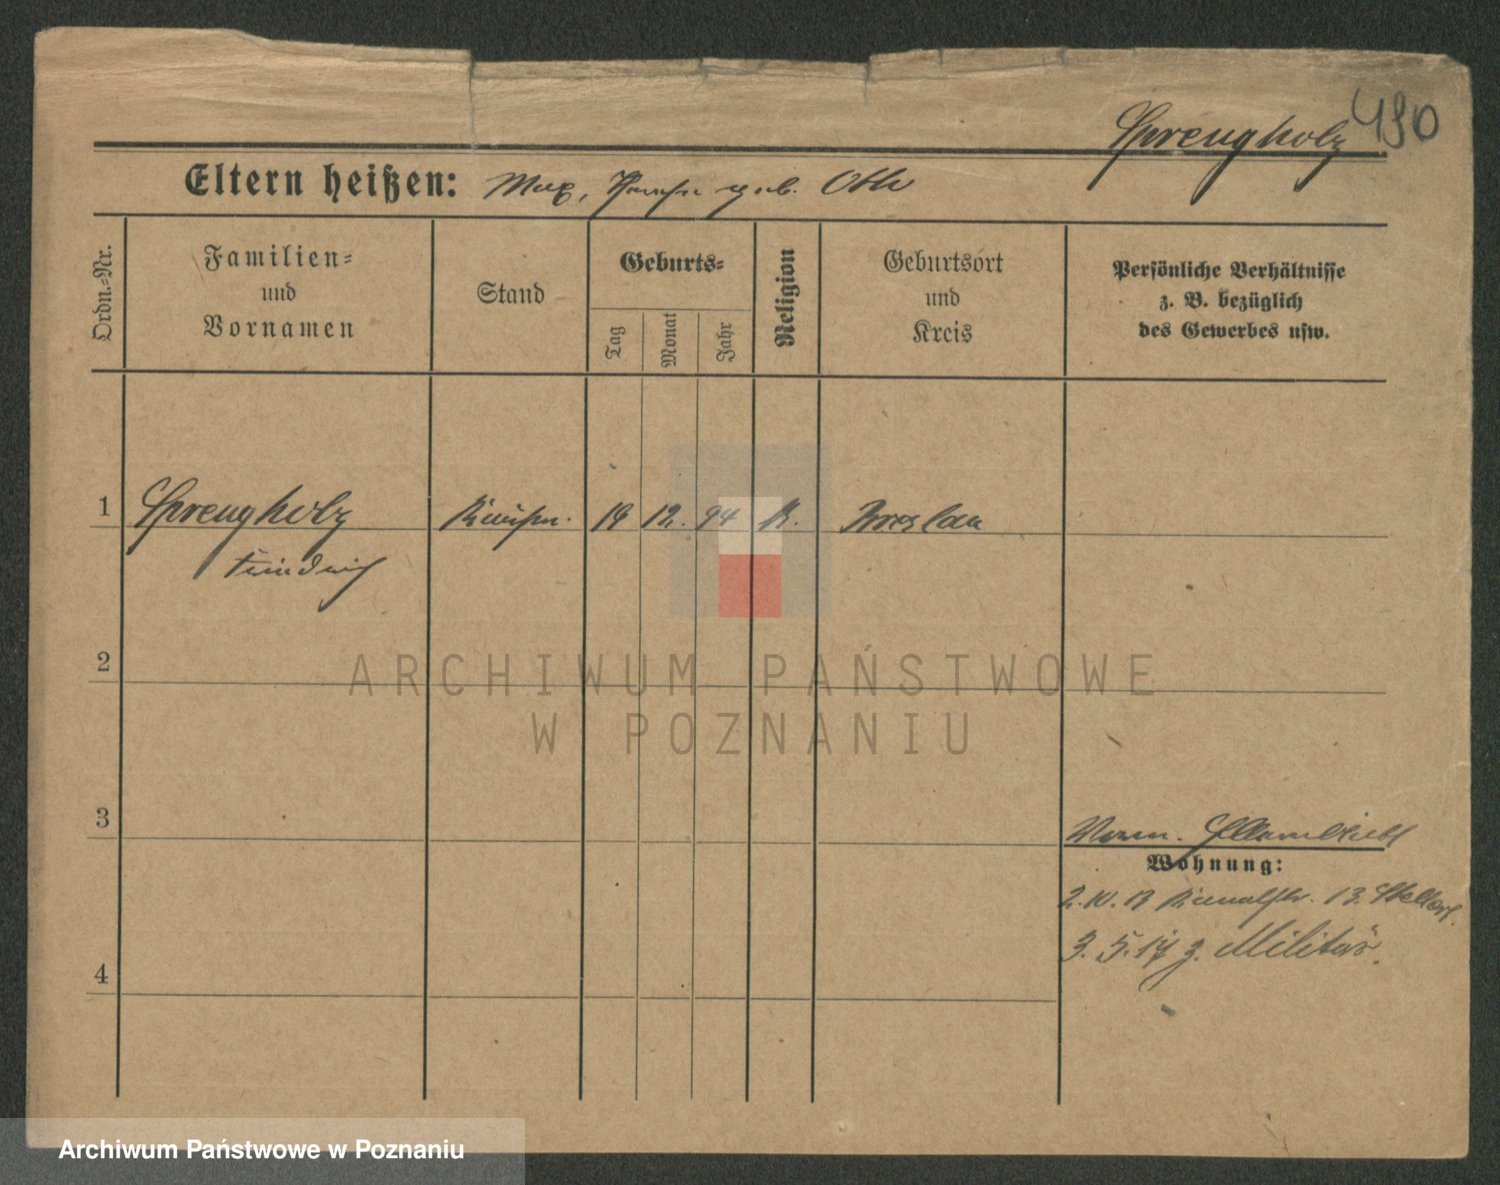 490
Sprengholz
Eltern heißen: Max, geb. Otte
Ordn.-Nr.
Familien-
und
Vornamen
Stand
Geburts-
Tag
Monat
Jahr
Religion
Geburtsort
und
Kreis
Persönliche Verhältnisse
z. B. bezüglich
des Gewerbes usw.
1 Sprengholz 19 12. 94 K. Breslau
Friedrich
ARCHIWUM PAŃSTWOWE
W POZNANIU
2
3
Wohnung:
2.10. 13.
3. 5. 17 z. Militär.
4
Archiwum Państwowe w Poznaniu